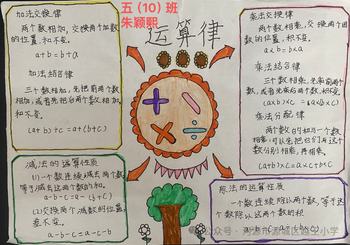 五(10)班
朱颖熙
运算律
加法交换律
两个数相加,交换两个加数
的位置,和不变。
a+b=b+a
加法结合律
三个数相加,先把前两个数
相加,或者先把后两个数相加,
和不变。
(a+b)+c=a+(b+c)
乘法交换律
两个数相乘,交换两个因
数的位置,积不变。
a×b=b×a
乘法结合律
三个数相乘,先乘前两个
数,或者先乘后两个数,积不变。
(a×b)×c=a×(b×c)
乘法分配律
两个数的和与一个数
相乘,可以先把它们与这个
数分别相乘,再相加。
(a+b)×c=a×c+b×c
减法的运算性质
(1)一个数连续减去两个数,
等于减去这两个数的和。
a-b-c=a-(b+c)
(2)交换两个减数的位置,
差不变。
a-b-c=a-c-b
除法的运算性质
一个数连续除以两个数,等于这
个数除以这两个数的积
公众号